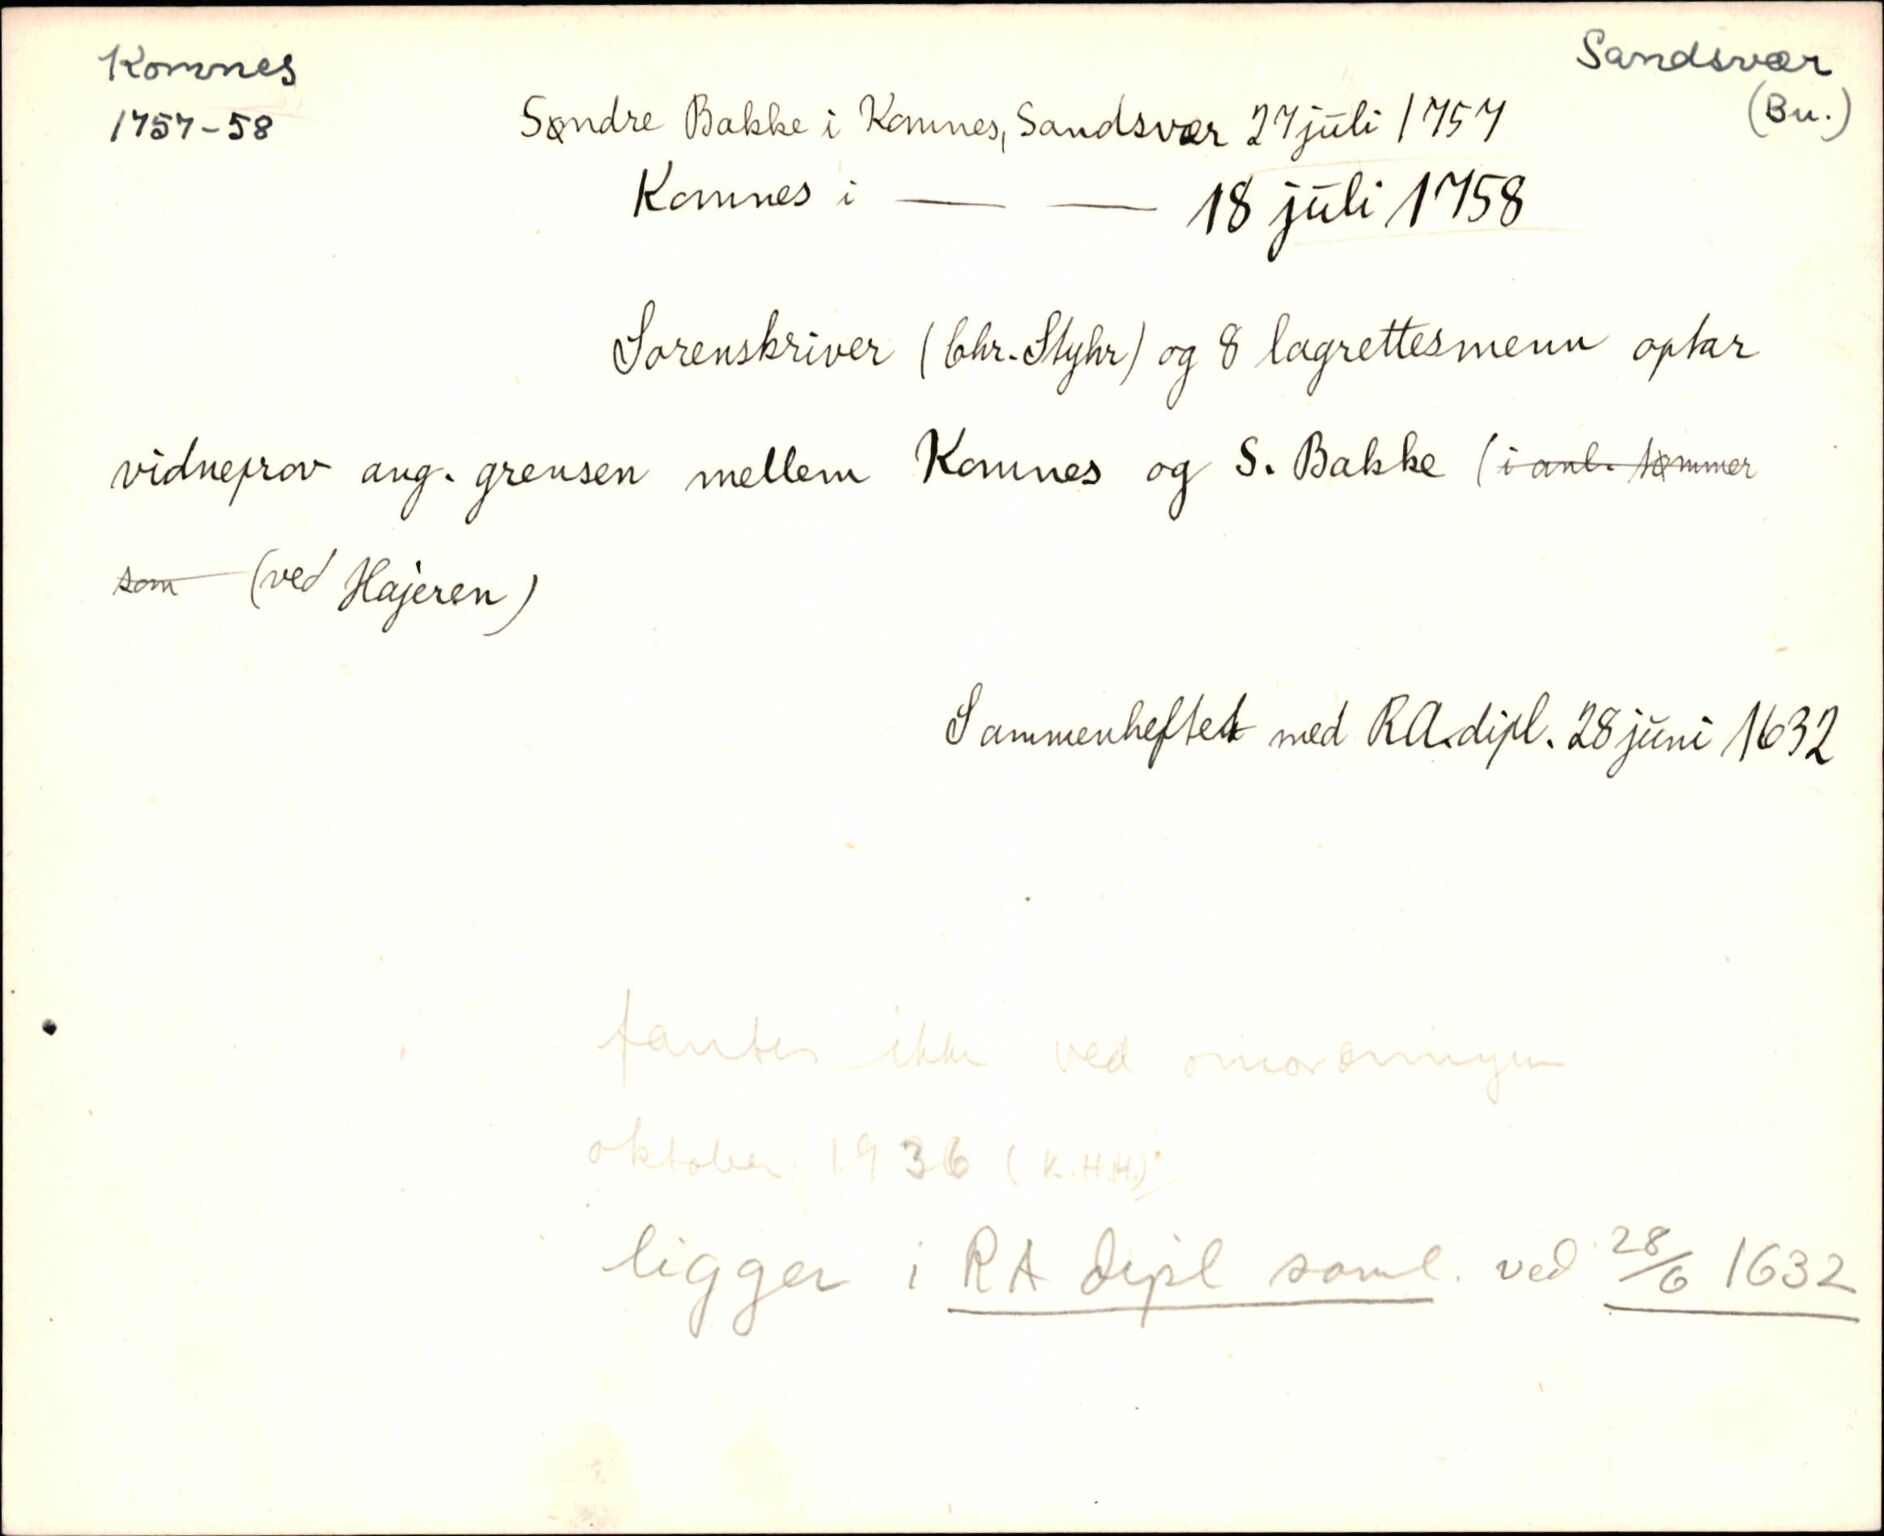 Komnes
Sandsvær
1757-58
(Bu.)
Søndre Bakke i Komnes, Sandsvær 27 juli 1757
Komnes i — — 18 juli 1758
Sorenskriver (Chr. Styhr) og 8 lagrettesmenn optar
vidneprov ang. grensen mellem Komnes og S. Bakke (i anl. tømmer
som (ved Hajeren)
Sammenheftet med RA.dipl. 28 juni 1632
fantes ikke ved omordningen
oktober 1936 (K.H.H.)
ligger i RA dipl saml. ved 28/6 1632